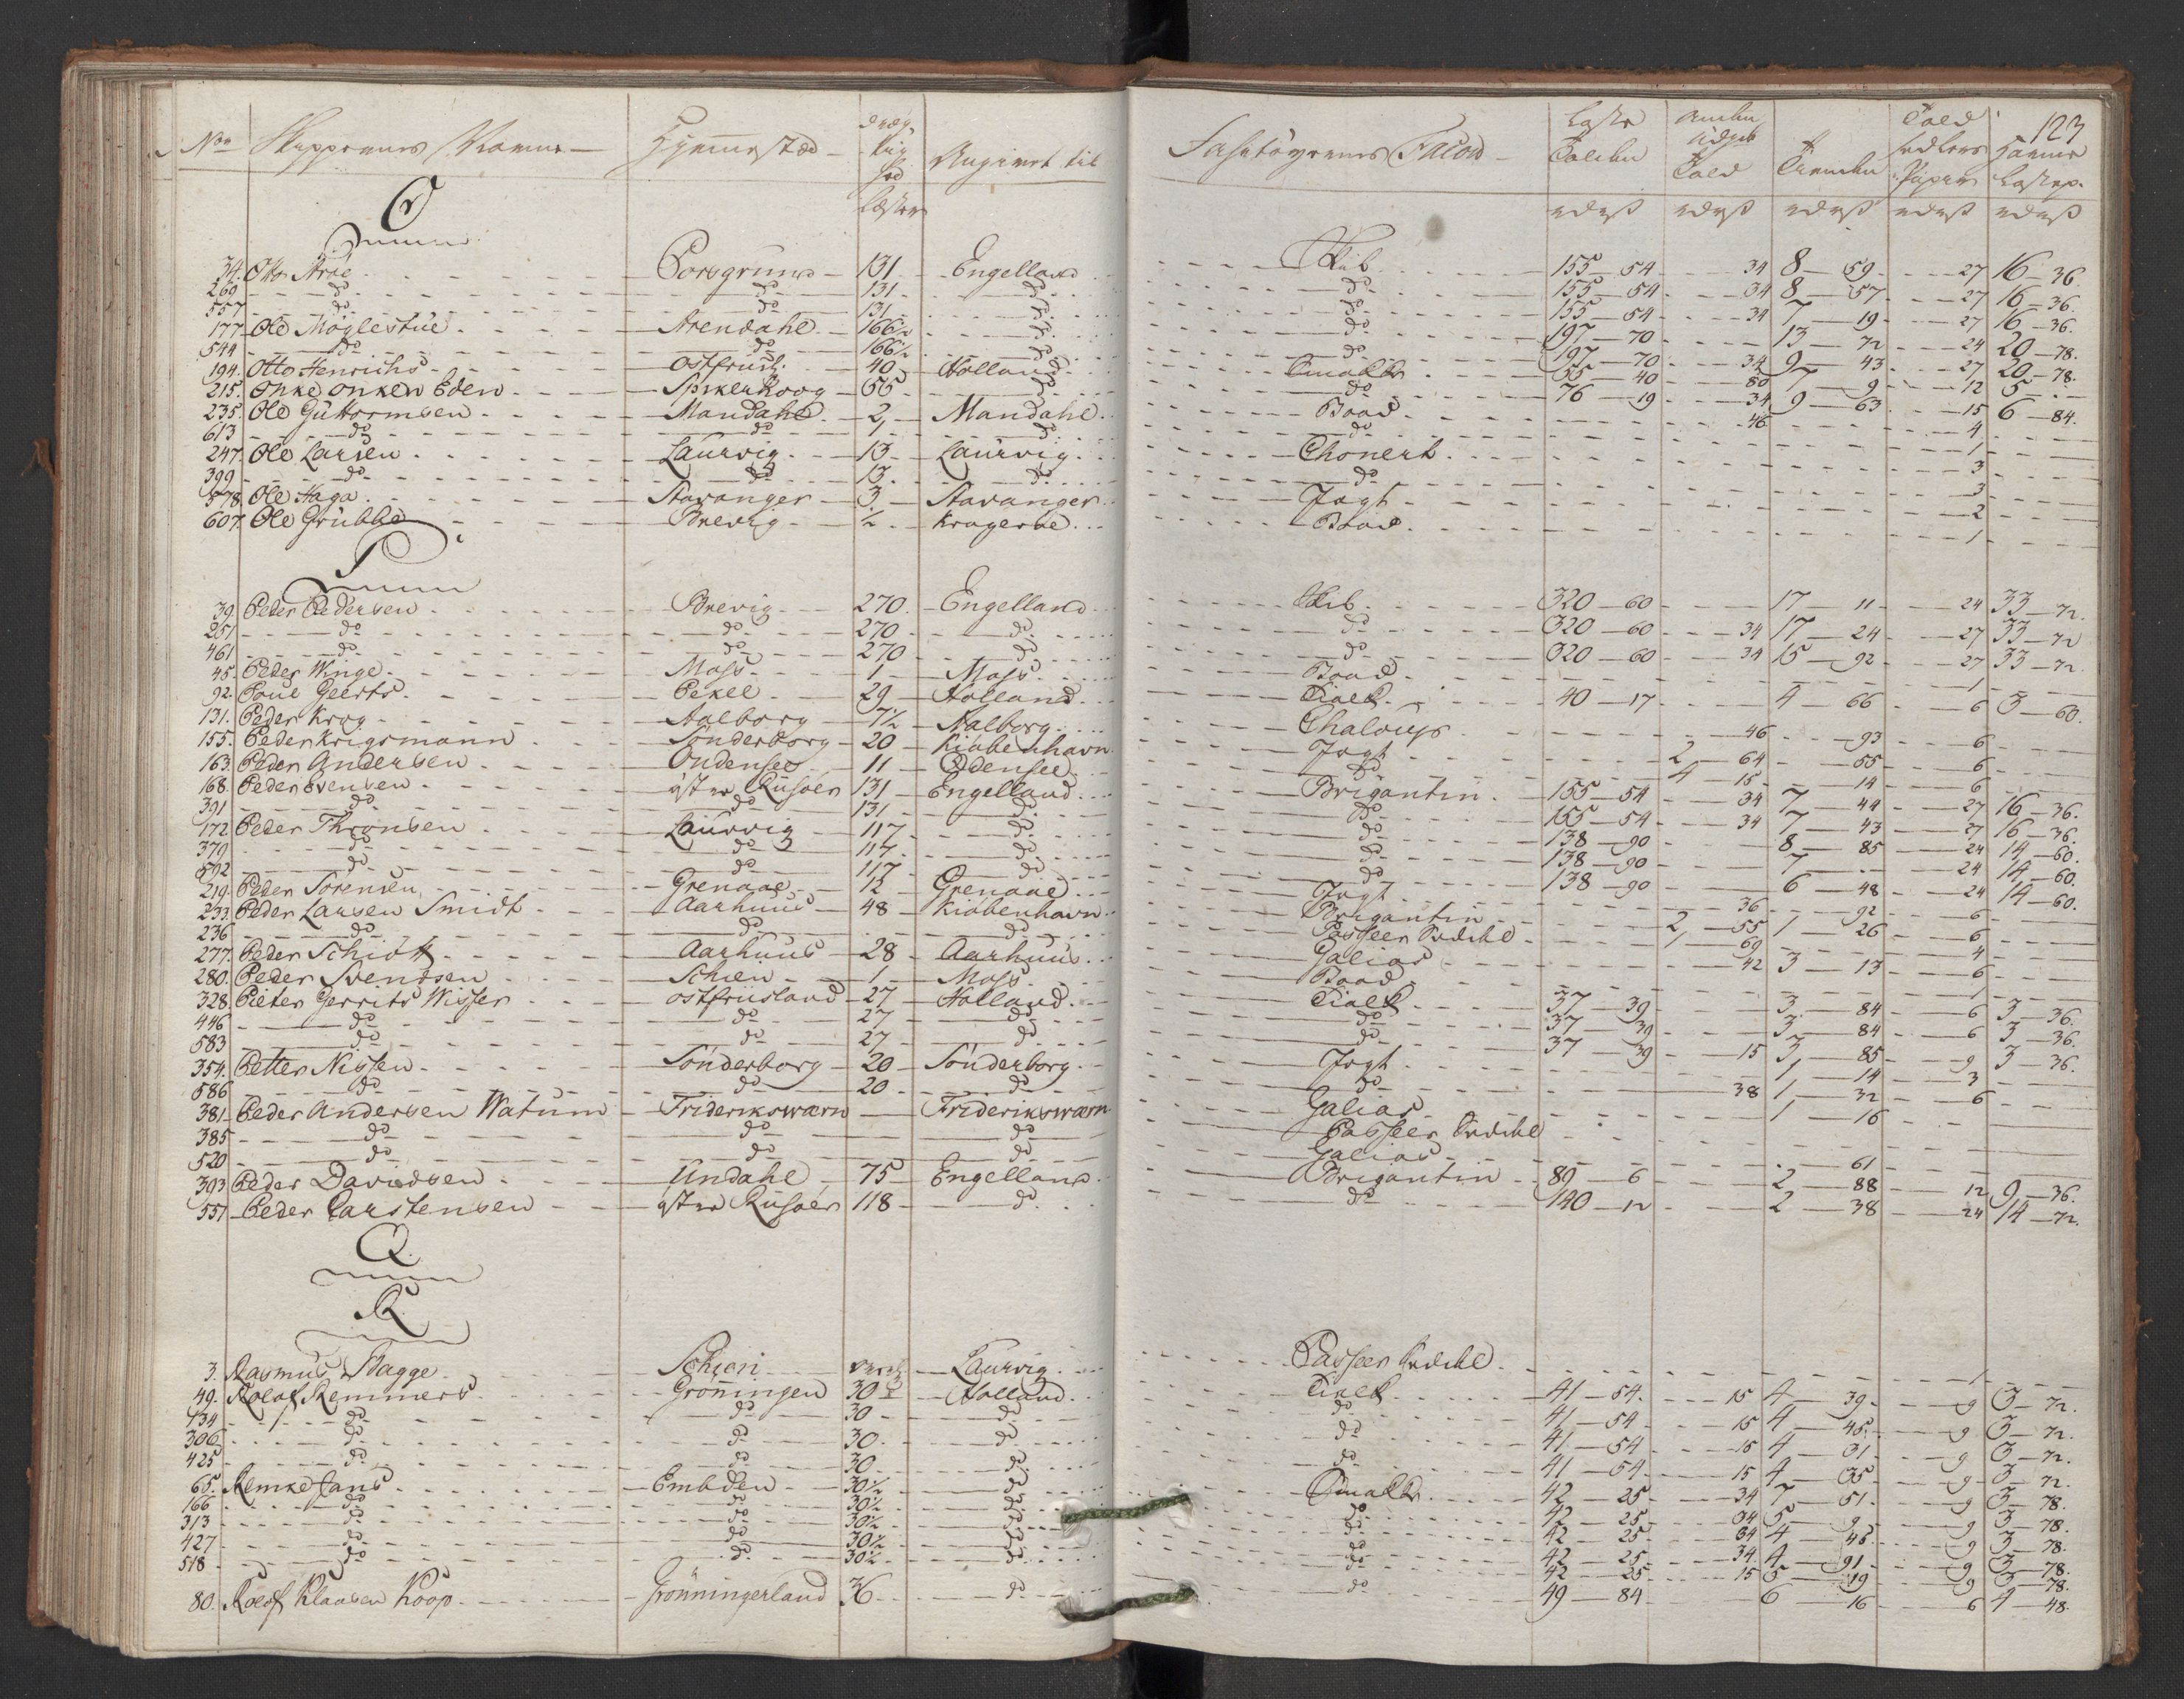 Nro Skipperens Navne Hjemmestæd Dræg- tig hed Læster Angivet til
O
34. Otto Aröe Porsgrund 131 Engelland
260 do do 131 do
557 do do 131 do
177 Ole Möglestüe Arendahl 166½ do
544 do do 166½ do
194. Otto Henrichs ostfriisl. 40 Holland
215. Onke onken Eden Spikerkoog 65 do
235. Ole Guttormsen Mandahl 2 Mandahl
613 do do 1 do
247. Ole Larsen Laurvig 13 Laurvig
399 do do 13 do
578. Ole Haga Stavanger 3 Stavanger
607. Ole Grübbe Brevig ½ Krageröe
P
39. Peder Pedersen Brevig 270 Engelland
251 do do 270 do
461 do do 270 do
45. Peder Winge Moss 1 Moss
92. Poul Geerts Pekel 29 Holland
131. Peder Krog Aalborg 7½ Aalborg
155. Peder Krigsmann Sönderborg 20 Kiöbenhavn
163. Peder Andersen Ondensee 11 Odensee
168. Peder Svensen öster Riisöer 131 Engelland
391 do do 131 do
172 Peder Thronsen Laurvig 117 do
379 do do 117 do
592 do do 117 do
219. Peder Sörensen Grenaae 12 Grenaae
233. Peder Larsen Smidt Aarhuus 48 Kiöbenhavn
236 do do do
277. Peder Schiöt Aarhuus 28 Aarhuus
280. Peder Svendsen Schien 1 Moss
328. Pieter Gerrits Wisser ostfriisland 27 Holland
446 do do 27 do
583 do do 27 do
354. Petter Nissen Sönderborg 20 Sönderborg
586 do do 20 do
381 Peder Andersen Watum Friderikswærn Friderikswærn
385 do do do
520 do do do
393 Peder Davidsen Undahl 75 Engelland
551 Peder Carstensen öster Riisöer 118 do
Q.
R.
3. Rasmus Bagge Schien Laurvig
49. Roelof Remmers Gröningen 30 Holland
134 do do 30 do
306 do do 30 do
425 do do 30 do
65. Remke Jans Embden 30½ do
166 do do 30½ do
313 do do 30½ do
427 do do 30½ do
518 do do 30½ do
80. Roelof Klaasen Koop Grönningerland 36 do
123
Fahrtöyernes Facon Laste Tolden Anden Udgth Told Trende Told sedlers Papir Havne Lastep.
rdrß rdrß rdrß rdrß rdrß
Skib 155 54 34 8 59 27 16 36.
do 155 54 34 8 57 27 16 36.
do 155 54 34 7 19 27 16 36.
do 197 70 13 72 24 20 78.
do 197 70 34 9 43 27 20 78.
Smakke 55 40 80 7 9 12 5
do 76 19 34 9 63 15 6 84.
Baad 46 4
do 1
Chonert 3
do 3
Jagt 2
Baad 1
Skib 320 60 17 11 24 33 72.
do 320 60 34 17 24 27 33 72
do 320 60 34 15 92 27 33 72.
Baad 1
Tialk 40 17 4 66 6 3 60.
Chaloup 46 93 6
Jagt 2 64 55 6
do 4 15 14 6
Brigantin 155 54 34 7 44 27 16 36.
do 155 54 34 7 43 27 16 36.
do 138 90 8 85 24 14 60.
do 138 90 7 24 14 60.
do 138 90 6 48 24 14 60.
Jagt 36 92 6
Brigantin 2 55 1 26 6
Passeer Seddel 1 69 4
Galias 42 3 13 6
Baad 1
Tialk 37 39 3 84 6 3 36.
do 37 39 3 84 6 3 36.
do 37 39 15 3 85 9 3 36.
Jagt 1 14 3
do 38 1 32 6
Galias 1 16
Passeer Seddel
Galias 61
Brigantin 89 6 2 88 12 9 36.
do 140 12 2 38 24 14 72.
Passeer Seddel 1
Tialk 41 54 15 4 39 9 3 72.
do 41 54 15 4 45 9 3 72.
do 41 54 15 4 31 9 3 72.
do 41 54 15 4 35 9 3 72.
Smakke 42 25 34 7 51 9 3 78.
do 42 25 34 5 9 9 3 78.
do 42 25 34 4 48 9 3 78.
do 42 25 34 4 91 9 3 78.
do 42 25 15 5 19 9 3 78.
do 49 84 6 16 6 4 48.